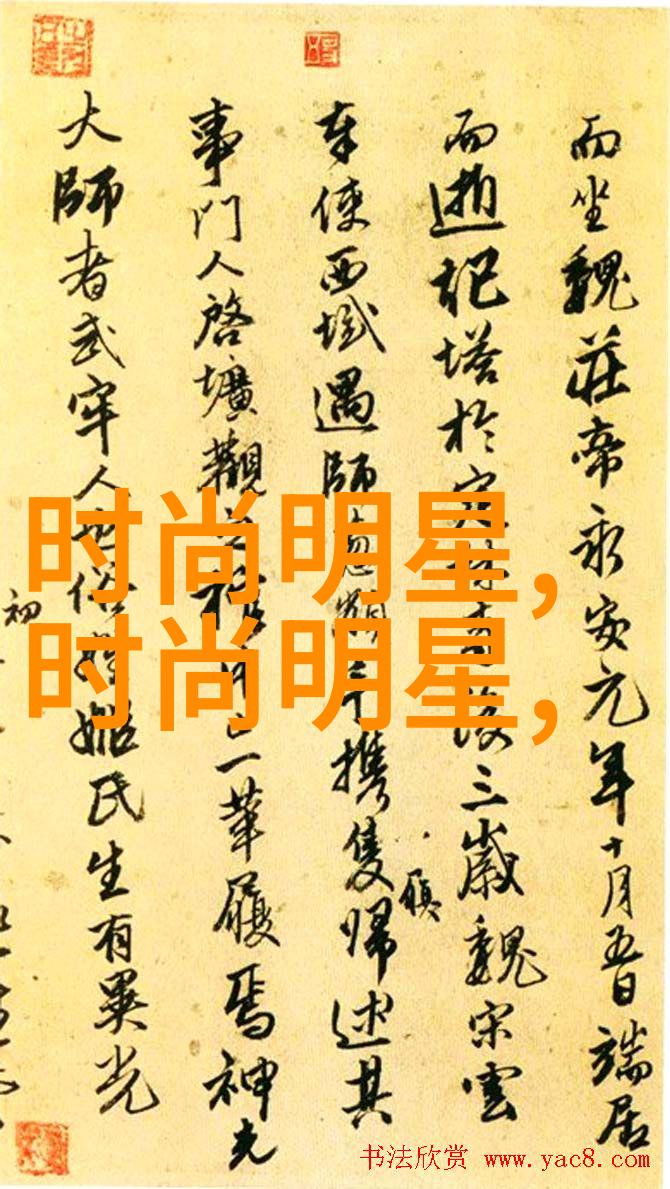 而坐魏莊帝永安元年十月五日端居
而逝記塔於定林後三歲魏宋雲
奉使西域遇師手攜隻歸述其
事門人啓壙觀之一革履焉神光
大師者武牢人也俗姓姬氏生有異光
初
时尚明星,
时尚明星,
书法欣赏 www.yac8.com